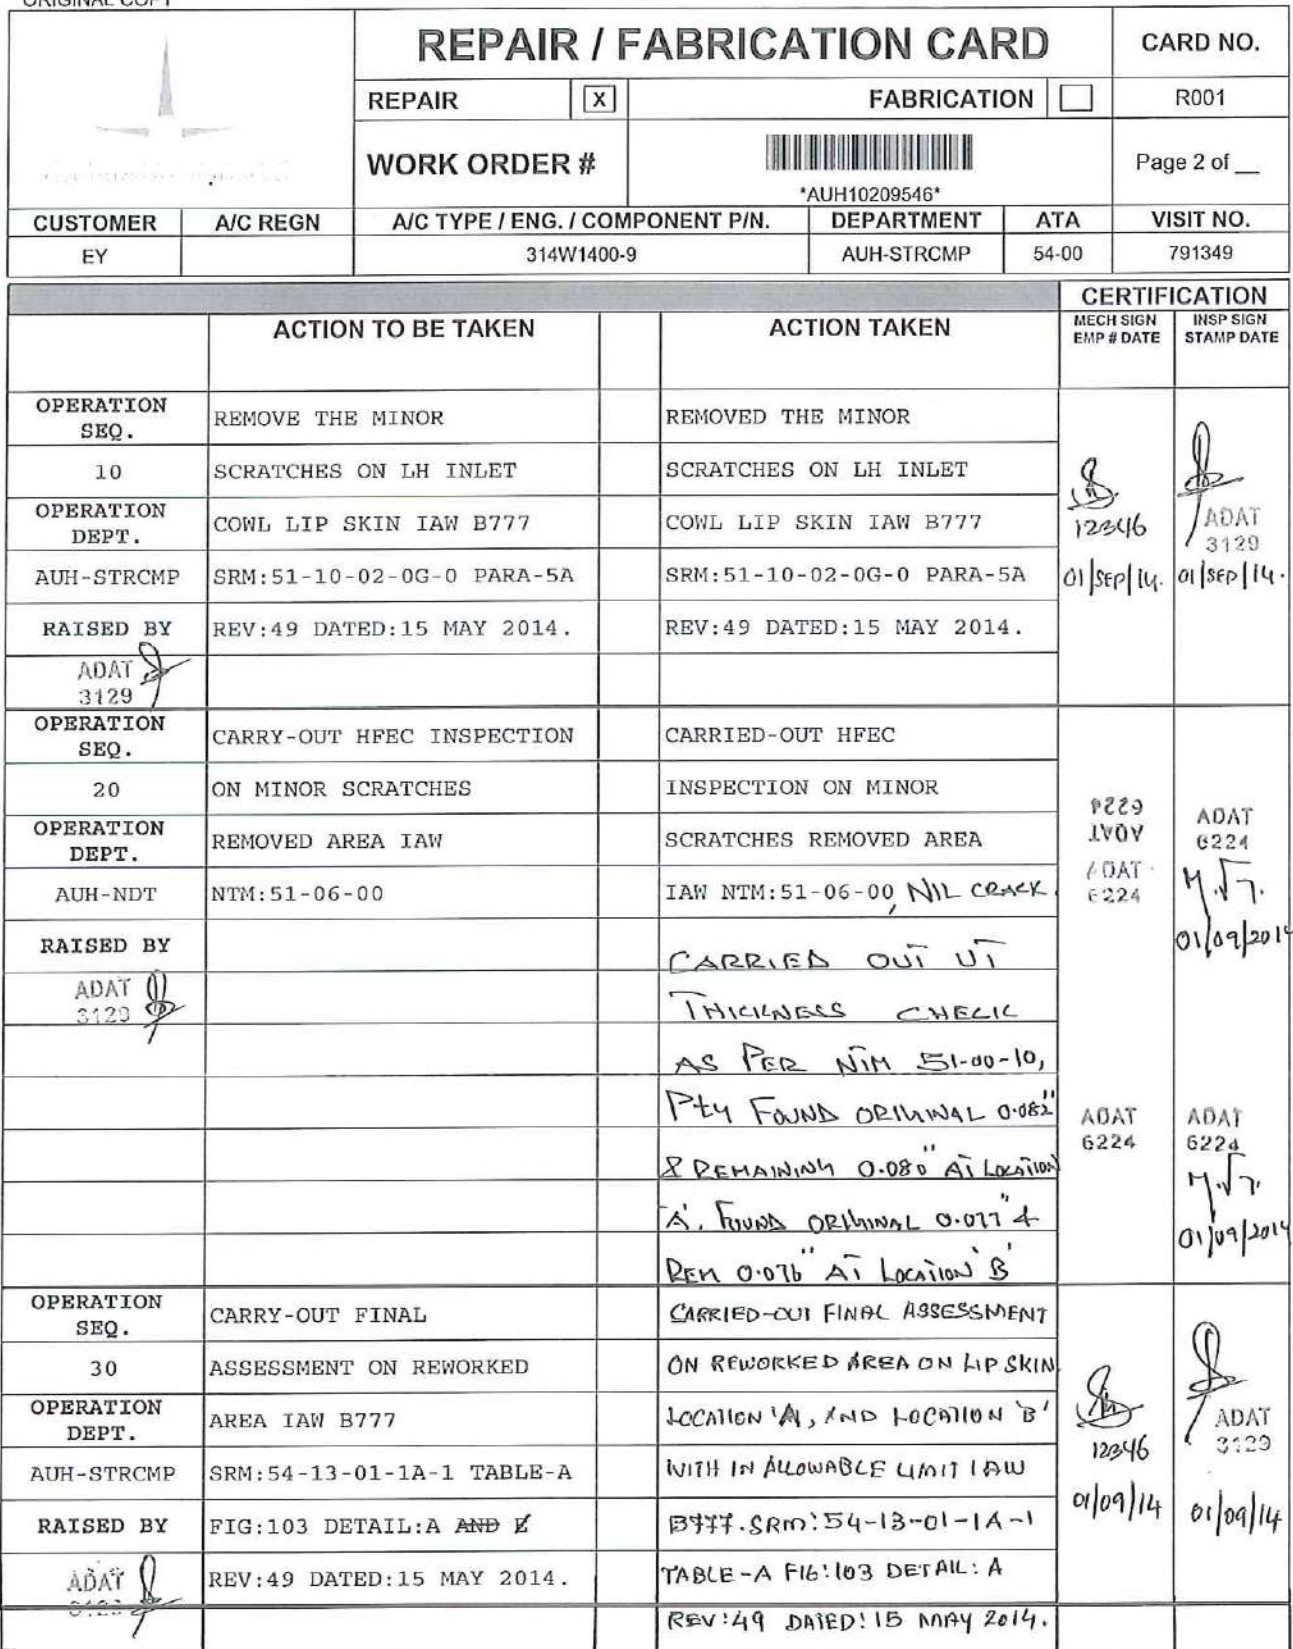 ORIGINAL COPY
REPAIR / FABRICATION CARD
CARD NO.
REPAIR X FABRICATION
R001
WORK ORDER #
*AUH10209546*
Page 2 of __
CUSTOMER A/C REGN A/C TYPE / ENG. / COMPONENT P/N. DEPARTMENT ATA VISIT NO.
EY 314W1400-9 AUH-STRCMP 54-00 791349
CERTIFICATION
ACTION TO BE TAKEN ACTION TAKEN
MECH SIGN INSP SIGN
EMP # DATE STAMP DATE
OPERATION
SEQ.
REMOVE THE MINOR REMOVED THE MINOR
10 SCRATCHES ON LH INLET SCRATCHES ON LH INLET
OPERATION
DEPT.
COWL LIP SKIN IAW B777 COWL LIP SKIN IAW B777
12346 ADAT
3129
AUH-STRCMP SRM:51-10-02-0G-0 PARA-5A SRM:51-10-02-0G-0 PARA-5A 01/SEP/14. 01/SEP/14.
RAISED BY REV:49 DATED:15 MAY 2014. REV:49 DATED:15 MAY 2014.
ADAT
3129
OPERATION
SEQ.
CARRY-OUT HFEC INSPECTION CARRIED-OUT HFEC
20 ON MINOR SCRATCHES INSPECTION ON MINOR
6224
ADAT
ADAT
6224
OPERATION
DEPT.
REMOVED AREA IAW SCRATCHES REMOVED AREA
ADAT
6224
AUH-NDT NTM:51-06-00 IAW NTM:51-06-00, NIL CRACK.
01/09/2014
RAISED BY CARRIED OUT UT
ADAT
3129
THICKNESS CHECK
AS PER NTM 51-00-10,
Pty FOUND ORIGINAL 0.082"
ADAT ADAT
6224 6224
& REMAINING 0.080" AT LOCATION
'A', FOUND ORIGINAL 0.077" &
01/09/2014
REM 0.076" AT LOCATION 'B'
OPERATION
SEQ.
CARRY-OUT FINAL CARRIED-OUT FINAL ASSESSMENT
30 ASSESSMENT ON REWORKED ON REWORKED AREA ON LIP SKIN
OPERATION
DEPT.
AREA IAW B777 LOCATION 'A', AND LOCATION 'B'
12346 ADAT
3129
AUH-STRCMP SRM:54-13-01-1A-1 TABLE-A WITH IN ALLOWABLE LIMIT IAW
01/09/14 01/09/14
RAISED BY FIG:103 DETAIL:A AND E B777.SRM:54-13-01-1A-1
ADAT
3129
REV:49 DATED:15 MAY 2014. TABLE-A FIG:103 DETAIL: A
REV:49 DATED:15 MAY 2014.